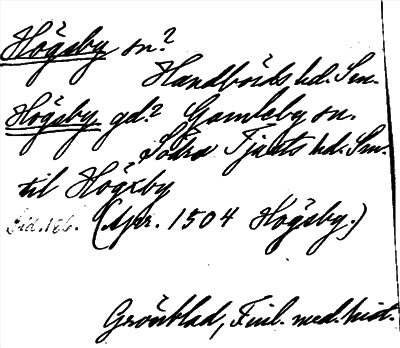 Högsby sn?
Handbörds hd. Sm.
Högsby gd? Gamleby sn.
Södra Tjusts hd. Sm.
til Högxby
Sid. 186. (Apr. 1504 Högsby.)
Grönblad, Finl. med. hist.